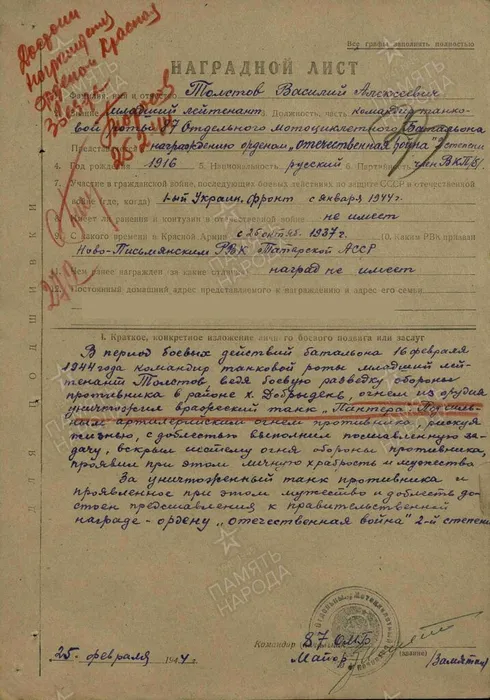 Все графы заполнять полностью
Достоин
награждения
орденом Красная
Звезда
23.2.44
НАГРАДНОЙ ЛИСТ
Фамилия, имя и отчество Толстов Василий Алексеевич
звание младший лейтенант Должность, часть командир танко-
вой роты 87 Отдельного Мотоциклетного Батальона
Представляется к награждению орденом „отечественная война" степени
4. Год рождения 1916 5. Национальность русский 6. Партийность член ВКП/б/
7. Участие в гражданской войне, последующих боевых действиях по защите СССР и отечественной
войне (где, когда) 1-ый Украин. фронт с января 1944г.
8. Имеет ли ранения и контузии в отечественной войне не имеет
9. С какого времени в Красной Армии с 26 октяб. 1937г. 10. Каким РВК призван
Ново-Письмянским РВК Татарской АССР
11. Чем ранее награжден (за какие отличия) наград не имеет
12. Постоянный домашний адрес представляемого к награждению и адрес его семьи
I. Краткое, конкретное изложение личного боевого подвига или заслуг
В период боевых действий батальона 16 февраля
1944 года командир танковой роты младший лей-
тенант Толстов ведя боевую разведку обороны
противника в районе х. Добрыдень, огнем из орудия
уничтожил вражеский танк „Пантера". Под силь-
ным артиллерийским огнем противника, рискуя
жизнью, с доблестью выполнил поставленную за-
дачу, вскрыл систему огня обороны противника,
проявил при этом личную храбрость и мужество
За уничтоженный танк противника и
проявленное при этом мужество и доблесть до-
стоен представления к правительственной
награде - ордену „отечественная война" 2-й степени
Командир 87 ОМБ
Майор (звание) /Замятин/
25 февраля 1944 г.
ДЛЯ ПОДШИВКИ
ПАМЯТЬ
НАРОДА